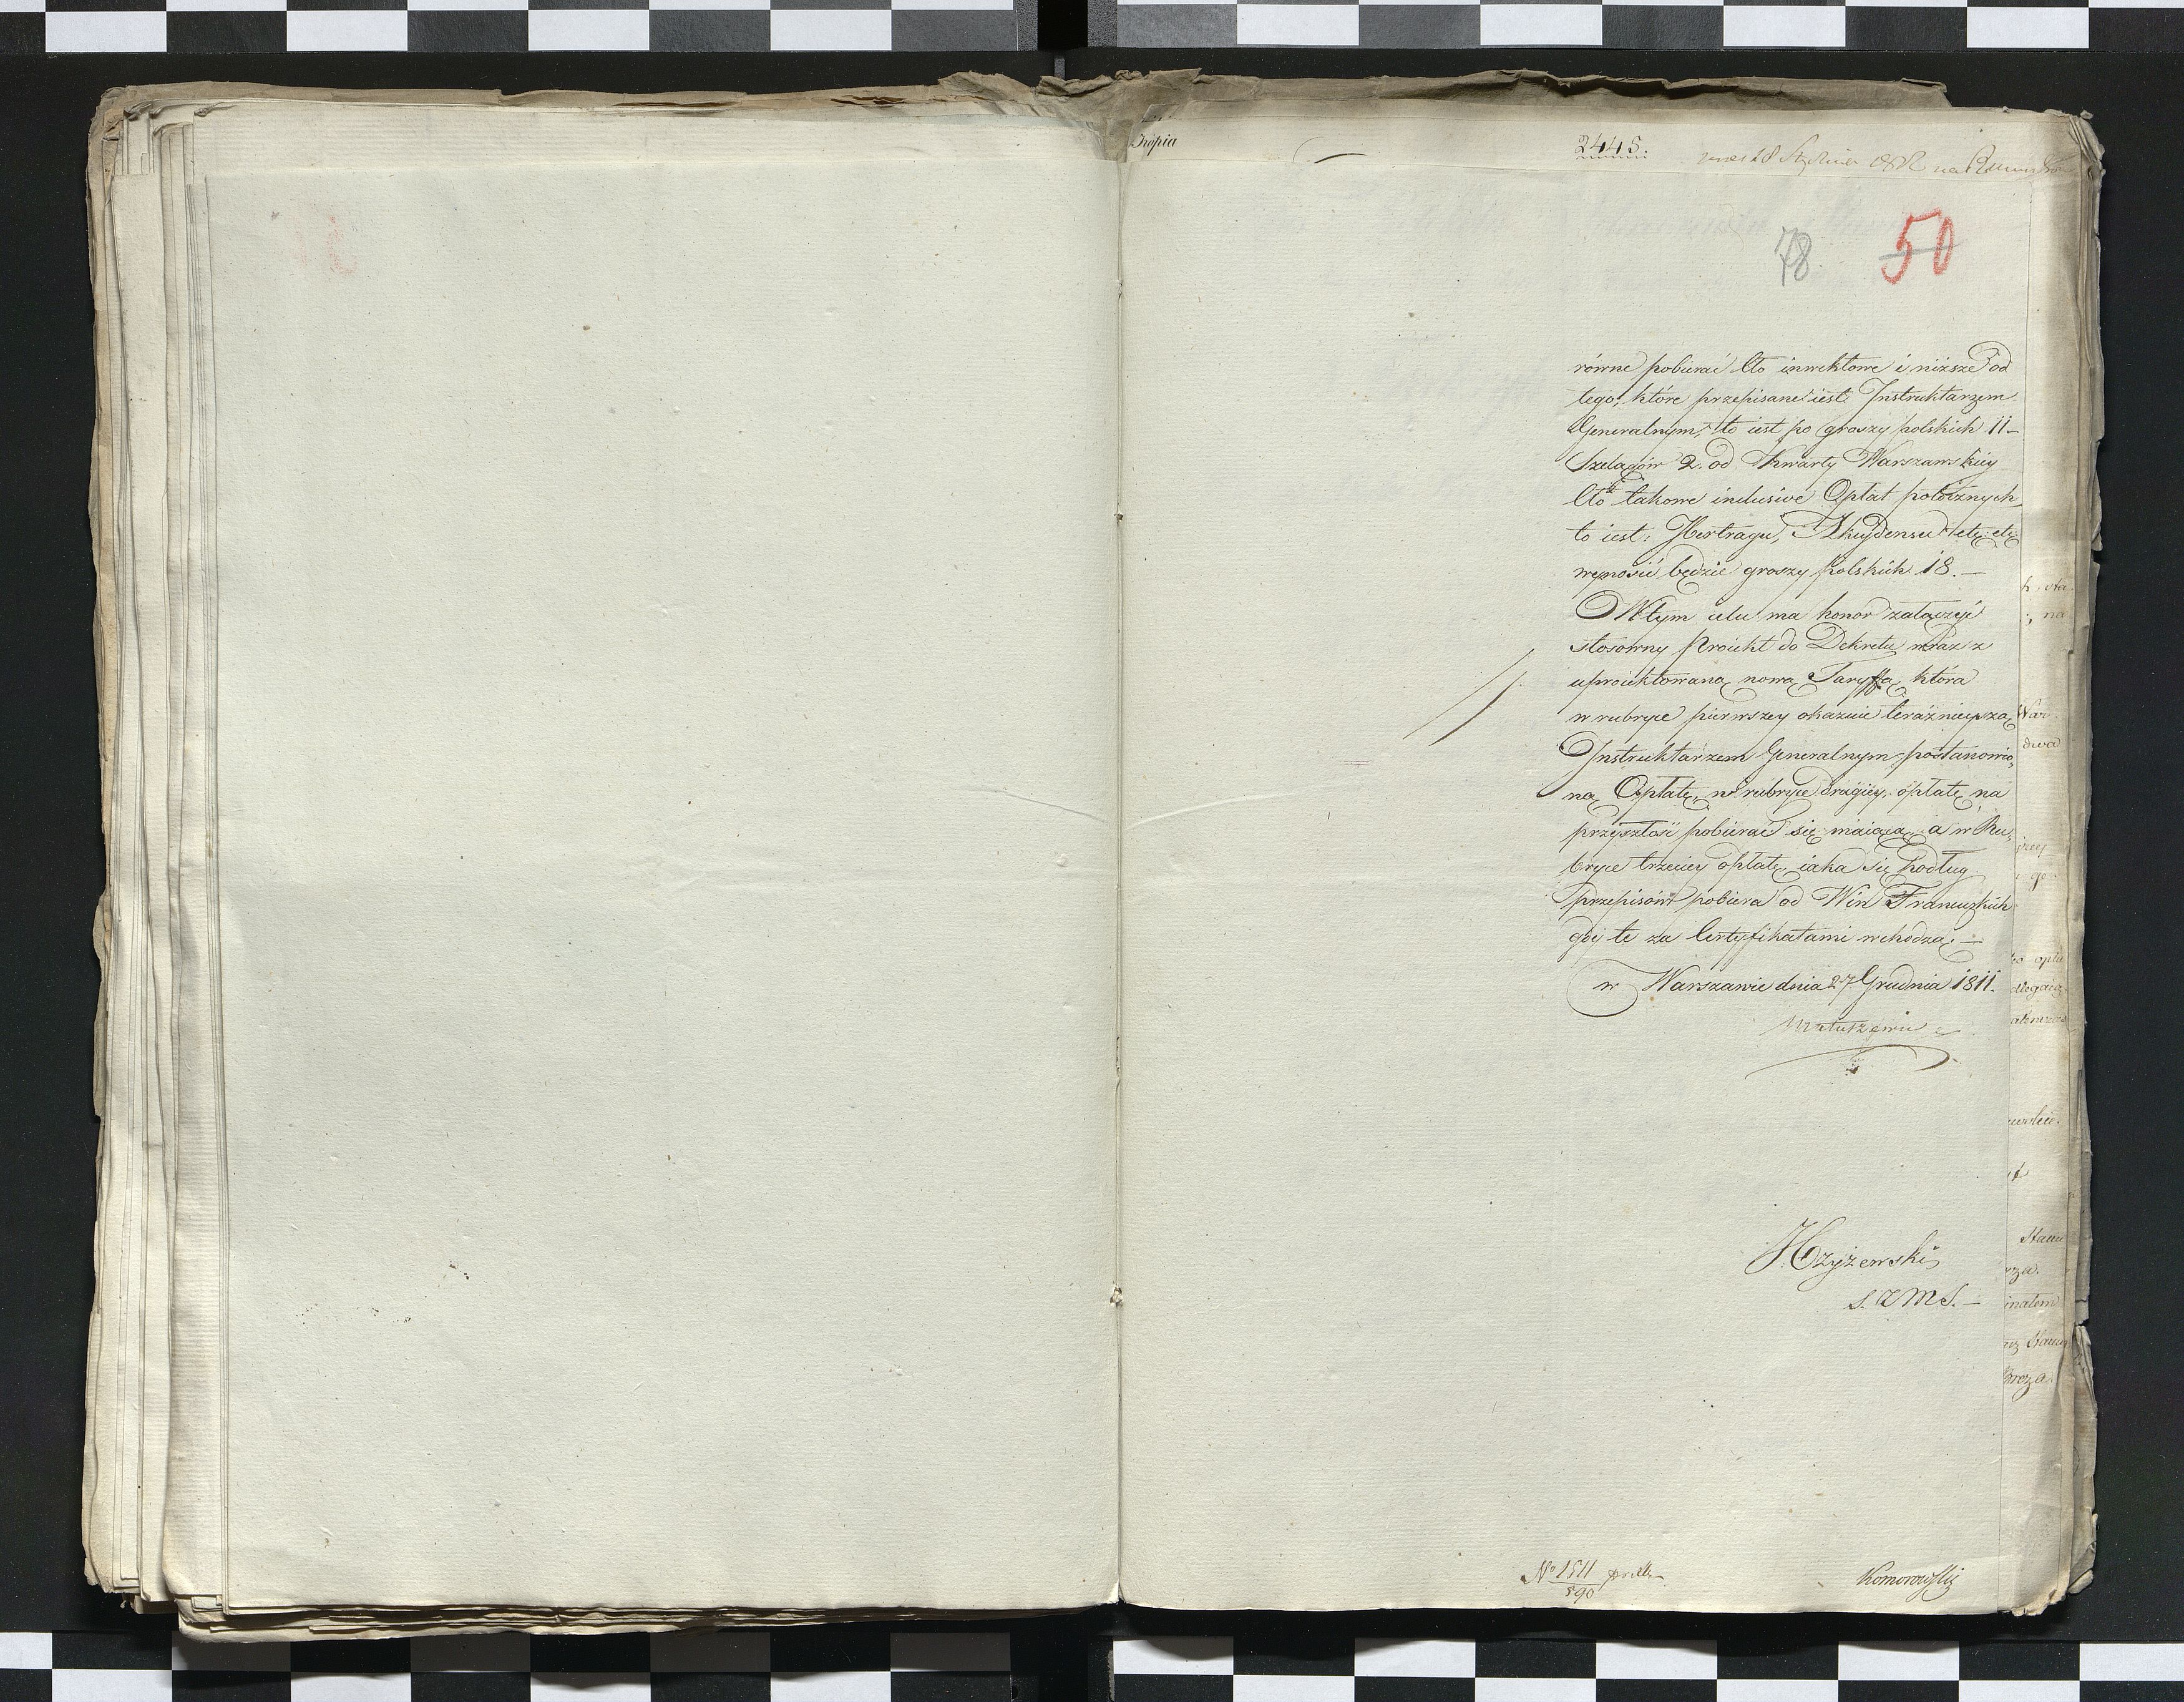 Kopia
2445.
78 50
równe pobierać Cło inwektowe i niższe od
tego, które przepisane iest Instruktarzem
Generalnym, to iest po groszy polskich 11–
Szelągów 2. od kwarty Warszawskiey
Cło takowe inclusive Opłat pobocznych
to iest: Hertragu, Akcydensu etc: etc:
wynosić będzie groszy polskich 18. –
W tym celu ma honor załączyć
stosowny Proiekt do Dekretu wraz z
uproiektowaną nową Taryffą, która
w rubryce pierwszey okazuie teraźnieyszą
Instruktarzem Generalnym postanowio„
ną Opłatę, w rubryce drugiey, opłatę na
przyszłość pobierać się maiącą, a w Ru„
bryce trzeciey opłatę, iaka się podług
przepisów pobiera od Win Francuzkich
gdy te za Certyfikatami wchodzą. –
w Warszawie dnia 27 Grudnia 1811.
Matuszewic
k, sta
na
War
dwa
szey
go
opła
dlegaią
Stanu
rza.
inałem
Stanu
Breza
S. Z M S. –
No 1811
590
Komorowski